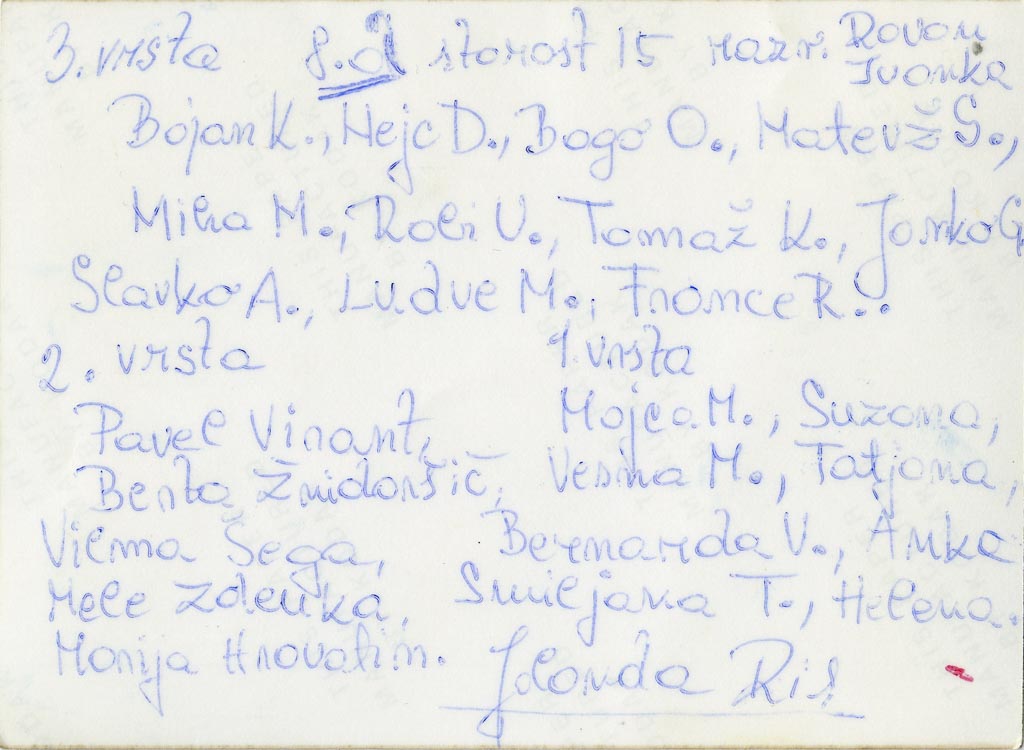 3. vrsta 8.a starost 15 razr. Rovan
Ivanka
Bojan K., Nejc D., Bogo O., Matevž S.,
Miha M., Robi V., Tomaž K., Janko G
Slavko A., Ludve M., France R..
2. vrsta
Pavel Virant,
Berta Žnidaršič,
Vilma Šega,
Mele Zdenka,
Marija Hrovatin.
1. vrsta
Mojca M., Suzana,
Vesna M., Tatjana,
Bernarda V., Anka
Smiljana T., Helena.
Jolanda Ris